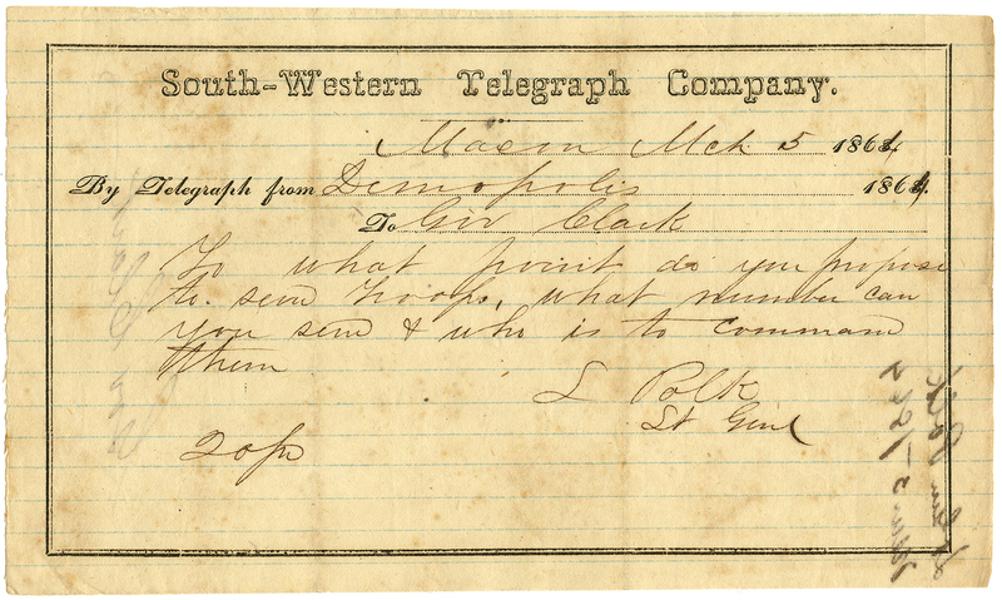 South-Western Telegraph Company.
Macon Mch 5 1864
By Telegraph from Demopolis 1864
To Gov Clark
To what point do you propose
to send troops, what number can
you send & who is to command
them
L Polk
Lt Genl